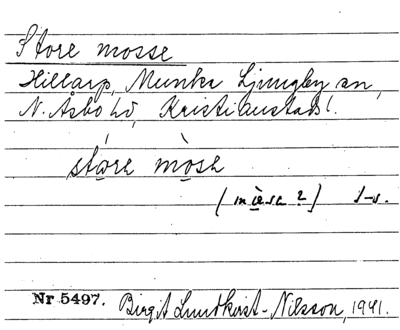 Store mosse
Hillarp, Munka Ljungby sn,
N. Åsbo hd, Kristianstads l.
stóre mòse
J-v.
Nr 5497. Birgit Lundkvist-Nilsson, 1941.